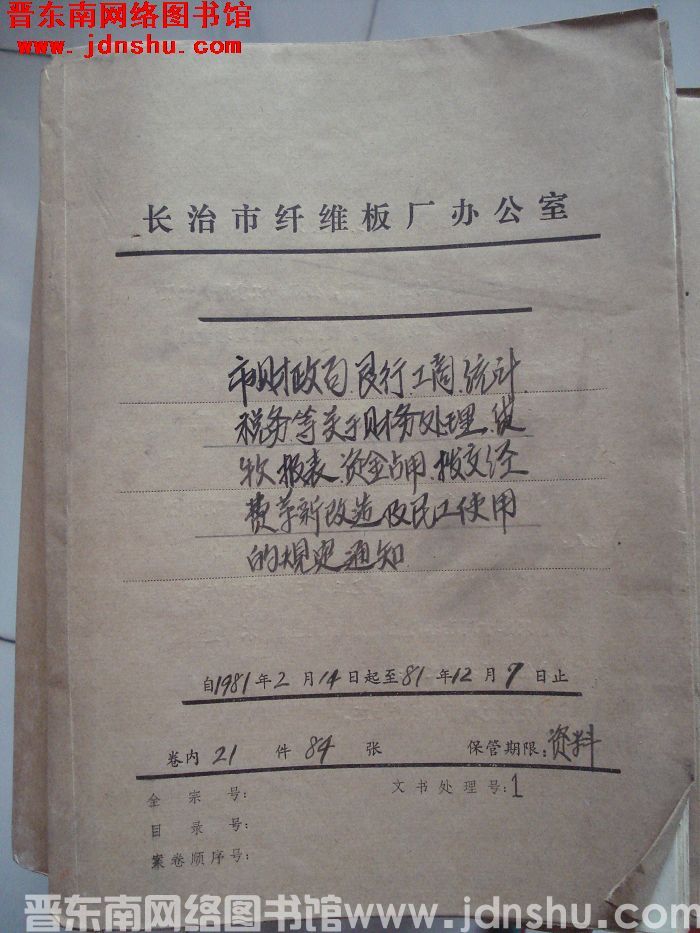 晋东南网络图书馆
www.jdnshu.com
长治市纤维板厂办公室
市财政局.良行.工商.统计.
税务等关于财务处理、
报表.资金占用.拨交经
费革新改造及民工使用
的规定通知
自1981年2月14日起至81年12月7日止
卷内21件84张 保管期限:资料
全宗号: 文书处理号:1
目录号:
案卷顺序号:
晋东南网络图书馆www.jdnshu.com